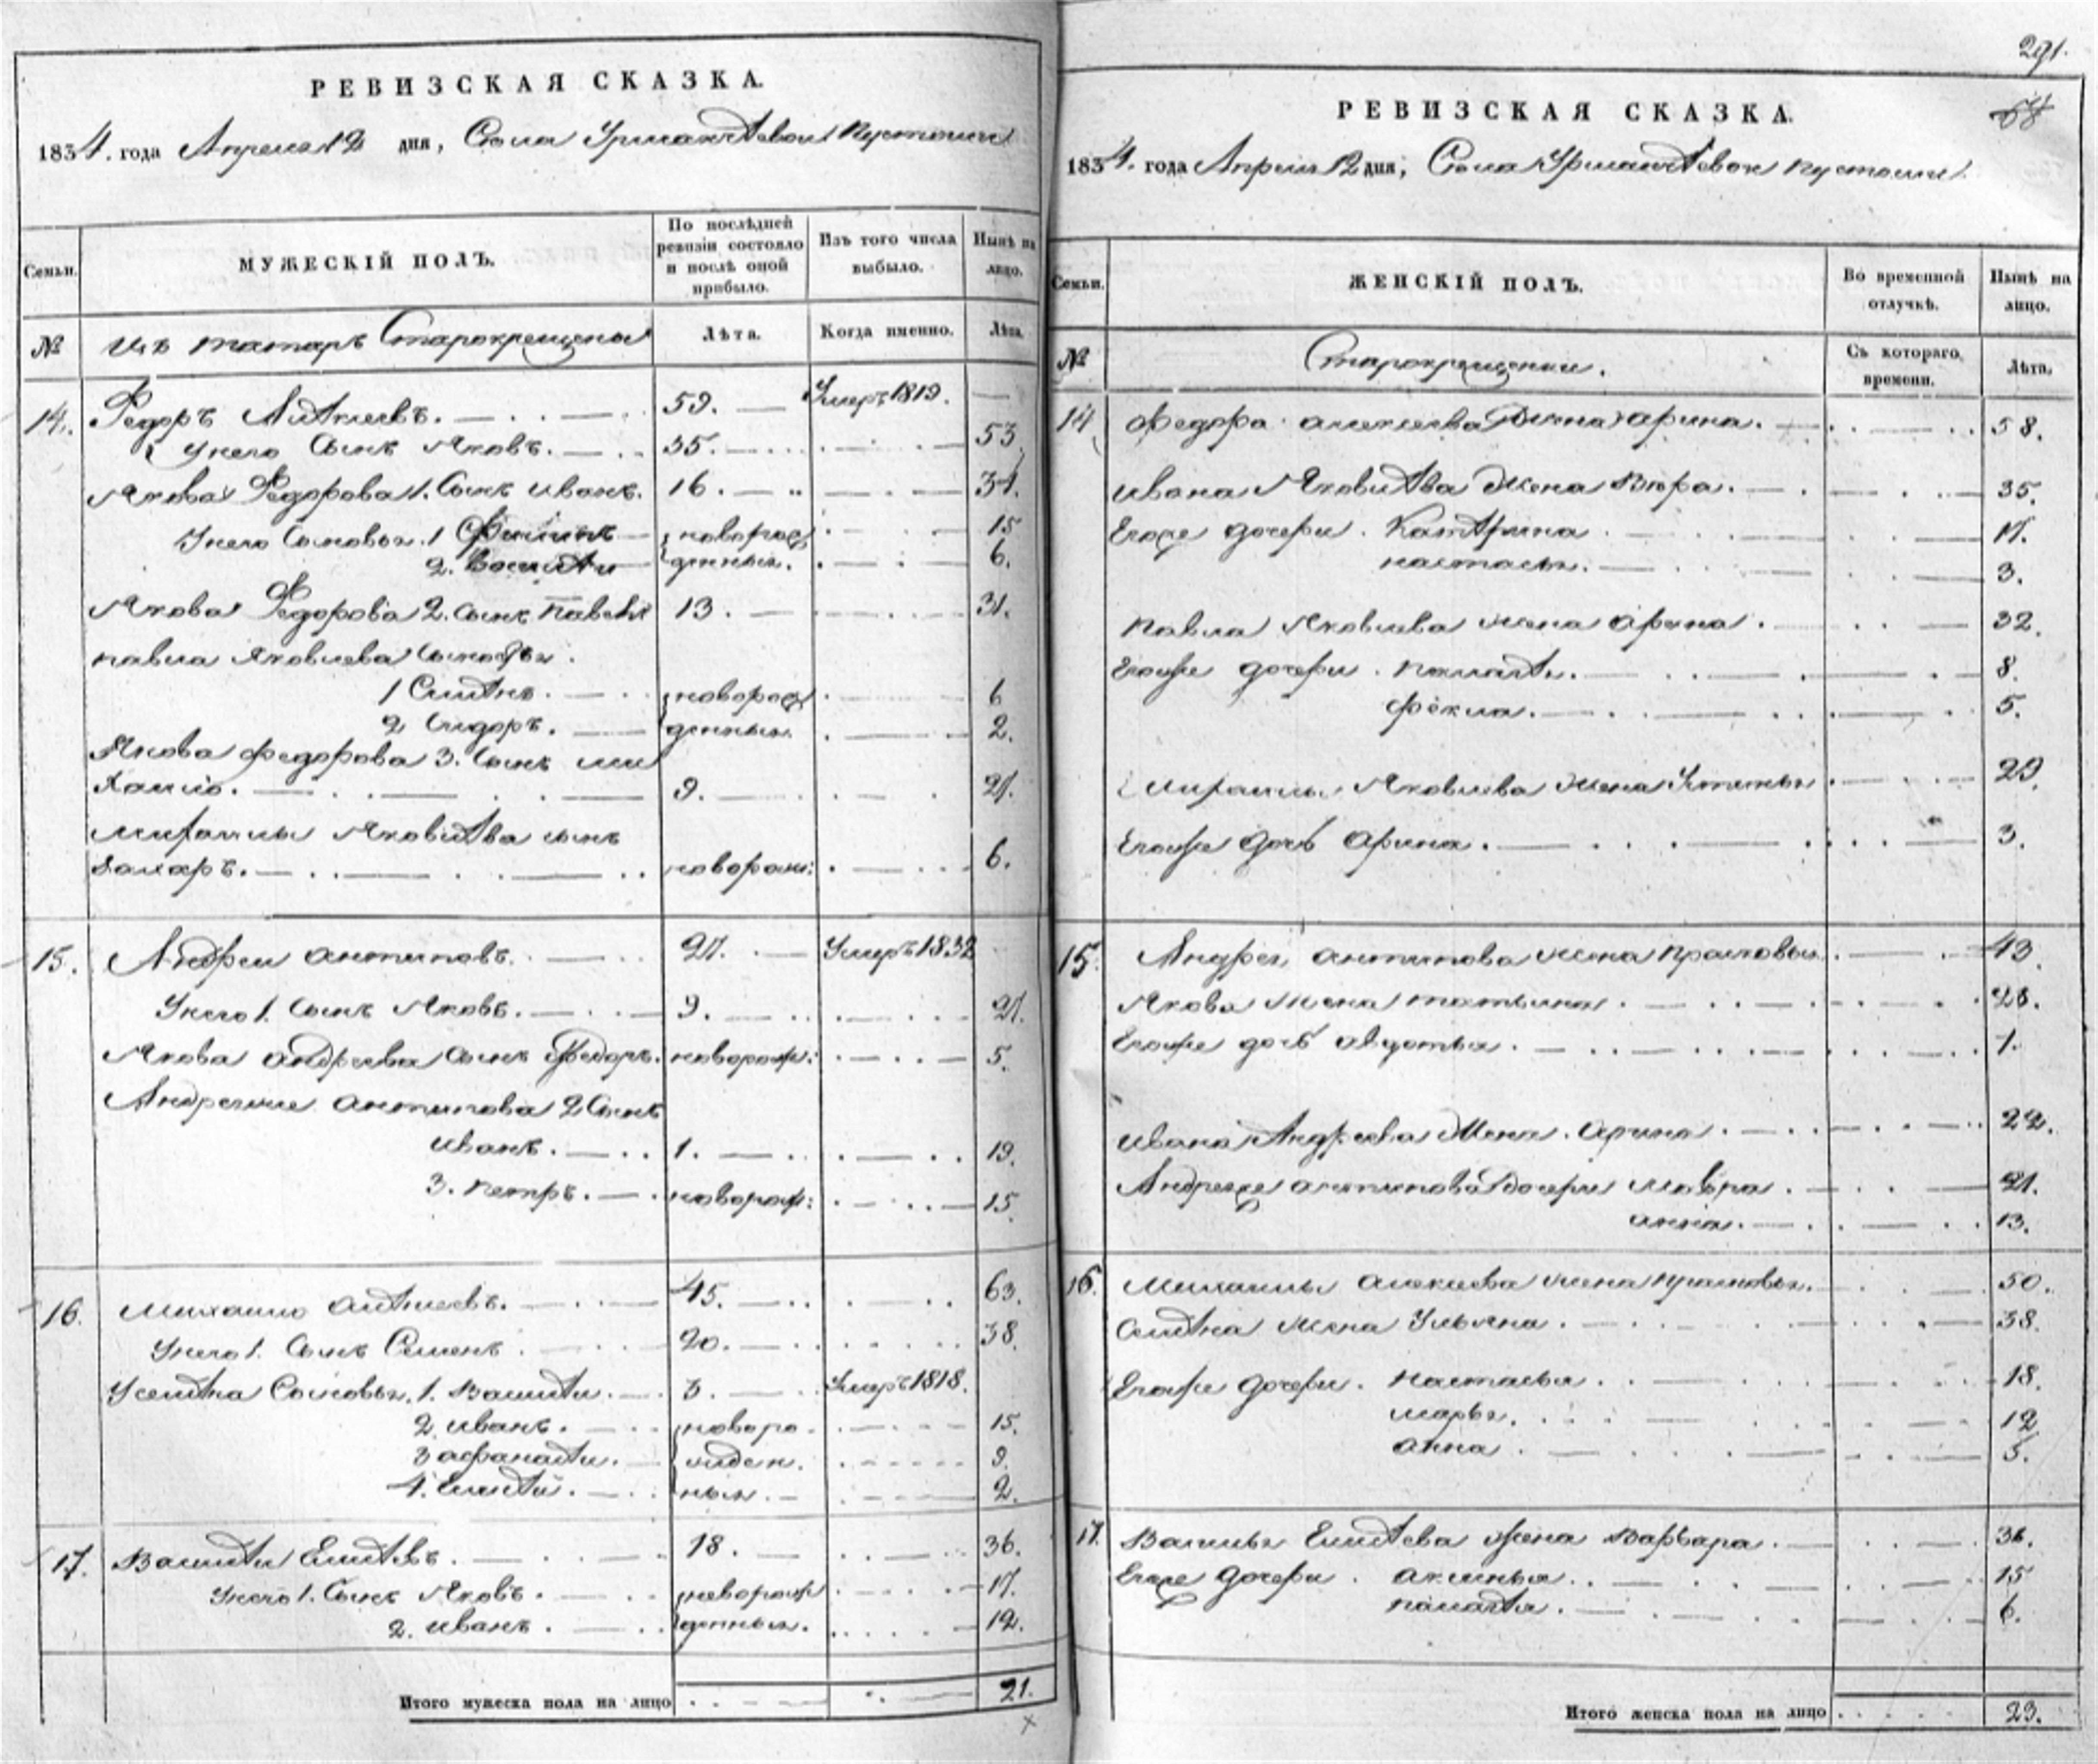 РЕВИЗСКАЯ СКАЗКА.
1834. года Апреля 12 дня, Села Урмантѣевой Пустоши
Семьи.
МУЖЕСКІЙ ПОЛЪ.
По послѣдней ревизіи состояло и послѣ оной прибыло.
Изъ того числа выбыло.
Нынѣ на лицо.
№
Изъ татаръ Старокрещены
Лѣта.
Когда именно.
Лѣта.
14. Федоръ Алѣксѣевъ. 59. Умеръ 1819.
у него Сынъ Яковъ. 35. 53
Якова Федорова 1. Сынъ иванъ. 16. 34.
У него Сыновья. 1 Филипъ новорож 15
2. Василѣи денныя. 6.
Якова Федорова 2. сынъ павелъ 13. 31.
павла Яковлева Сыновья.
1 Семѣнъ. новорож 6
2 Сидоръ. денныя. 2.
Якова федорова 3. Сынъ ми
хаило. 9. 27.
Михаилы Яковлѣва сынъ
Захаръ. новорож: 6.
15. Андреи антиповъ. 27. Умеръ 1832
У него 1. Сынъ Яковъ. 9. 27.
Якова андреева Сынъ Федоръ. новорож: 5.
Андреяже антипова 2 Сынъ
иванъ. 1. 19.
3. петръ. новорож: 15.
16. Михаило алѣксѣевъ. 45. 63.
У него 1. Сынъ Семенъ. 20. 38.
У семѣна Сыновья. 1. Василѣи. 3. Умеръ 1818.
2 иванъ. новоро 15.
3 афанасѣи. жден. 9.
4. Елисѣй. ныя. 2.
17. Василѣи Елисѣевъ. 18. 36.
У него 1. Сынъ Яковъ. новорож 17.
2. иванъ. денныя. 12.
Итого мужеска пола на лицо 21.
291.
РЕВИЗСКАЯ СКАЗКА.
1834. года Апреля 12 дня, Села Урмантѣевой пустоши.
Семьи.
ЖЕНСКІЙ ПОЛЪ.
Во временной отлучкѣ.
Нынѣ на лицо.
№
Старокрещенки.
Съ котораго времени.
Лѣта.
14 Федора алексеева Жена арина. 58.
ивана Яковлѣва Жена вѣра. 35.
Егоже дочери. Катѣрина 17.
настасья. 3.
павла Яковлева жена арина. 32.
Егоже дочери. пелагѣя. 8.
фѣкла. 5.
Михаилы Яковлева жена Устинья 29.
Егоже дочь арина. 3.
15. Андрея антипова жена прасковья 43.
Якова Жена татьяна. 28.
Егоже дочь авдотья. 1.
ивана Андреева Жена. арина. 22.
Андреяже антипова дочери мавра. 21.
анна. 13.
16. Михаилы алексеева жена прасковья. 50.
Семѣна жена Ульяна. 38.
Егоже дочери. настасья 18.
марья. 12
анна 5.
17. Василья Елисѣева жена варвара. 36.
Егоже дочери. аксинья. 15
пелагѣя. 6.
Итого женска пола на лицо 23.